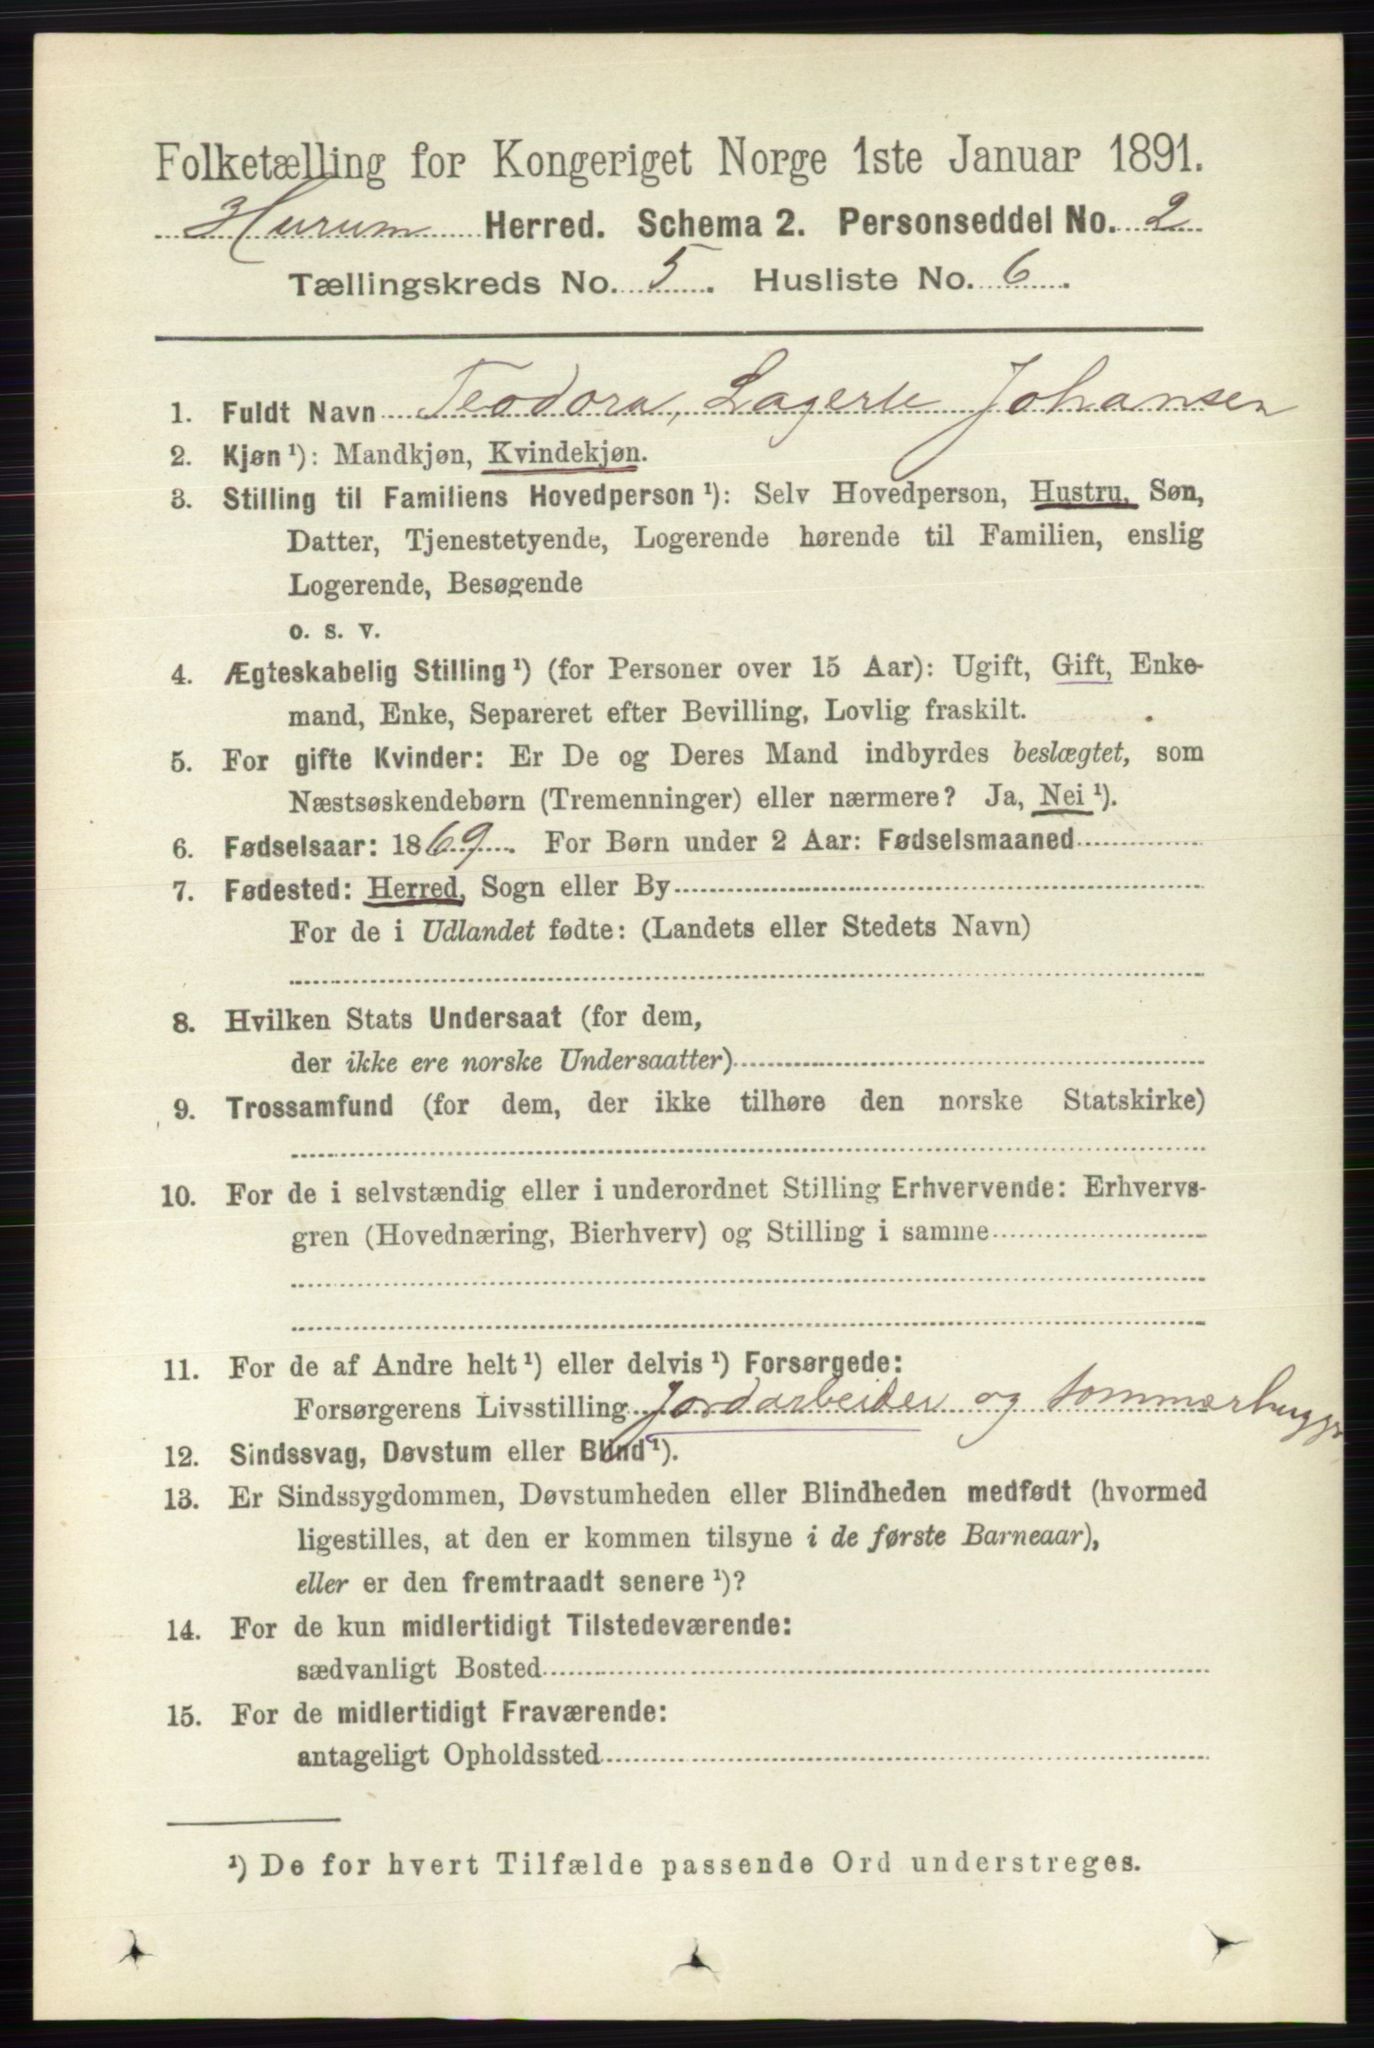 Folketælling for Kongeriget Norge 1ste Januar 1891.
Hurum Herred. Schema 2. Personseddel No. 2
Tællingskreds No. 5. Husliste No. 6.
1. Fuldt Navn Teodora, Lagerle Johansen
2. Kjøn ¹): Mandkjøn, Kvindekjøn.
3. Stilling til Familiens Hovedperson ¹): Selv Hovedperson, Hustru, Søn,
Datter, Tjenestetyende, Logerende hørende til Familien, enslig
Logerende, Besøgende
o. s. v.
4. Ægteskabelig Stilling ¹) (for Personer over 15 Aar): Ugift, Gift, Enke-
mand, Enke, Separeret efter Bevilling, Lovlig fraskilt.
5. For gifte Kvinder: Er De og Deres Mand indbyrdes beslægtet, som
Næstsøskendebørn (Tremenninger) eller nærmere? Ja, Nei ¹).
6. Fødselsaar: 1869. For Børn under 2 Aar: Fødselsmaaned
7. Fødested: Herred, Sogn eller By
For de i Udlandet fødte: (Landets eller Stedets Navn)
8. Hvilken Stats Undersaat (for dem,
der ikke ere norske Undersaatter)
9. Trossamfund (for dem, der ikke tilhøre den norske Statskirke)
10. For de i selvstændig eller i underordnet Stilling Erhvervende: Erhvervs-
gren (Hovednæring, Bierhverv) og Stilling i samme
11. For de af Andre helt ¹) eller delvis ¹) Forsørgede:
Forsørgerens Livsstilling Jordarbeider og tommerhugger
12. Sindssvag, Døvstum eller Blind ¹).
13. Er Sindssygdommen, Døvstumheden eller Blindheden medfødt (hvormed
ligestilles, at den er kommen tilsyne i de første Barneaar),
eller er den fremtraadt senere ¹)?
14. For de kun midlertidigt Tilstedeværende:
sædvanligt Bosted
15. For de midlertidigt Fraværende:
antageligt Opholdssted
¹) De for hvert Tilfælde passende Ord understreges.